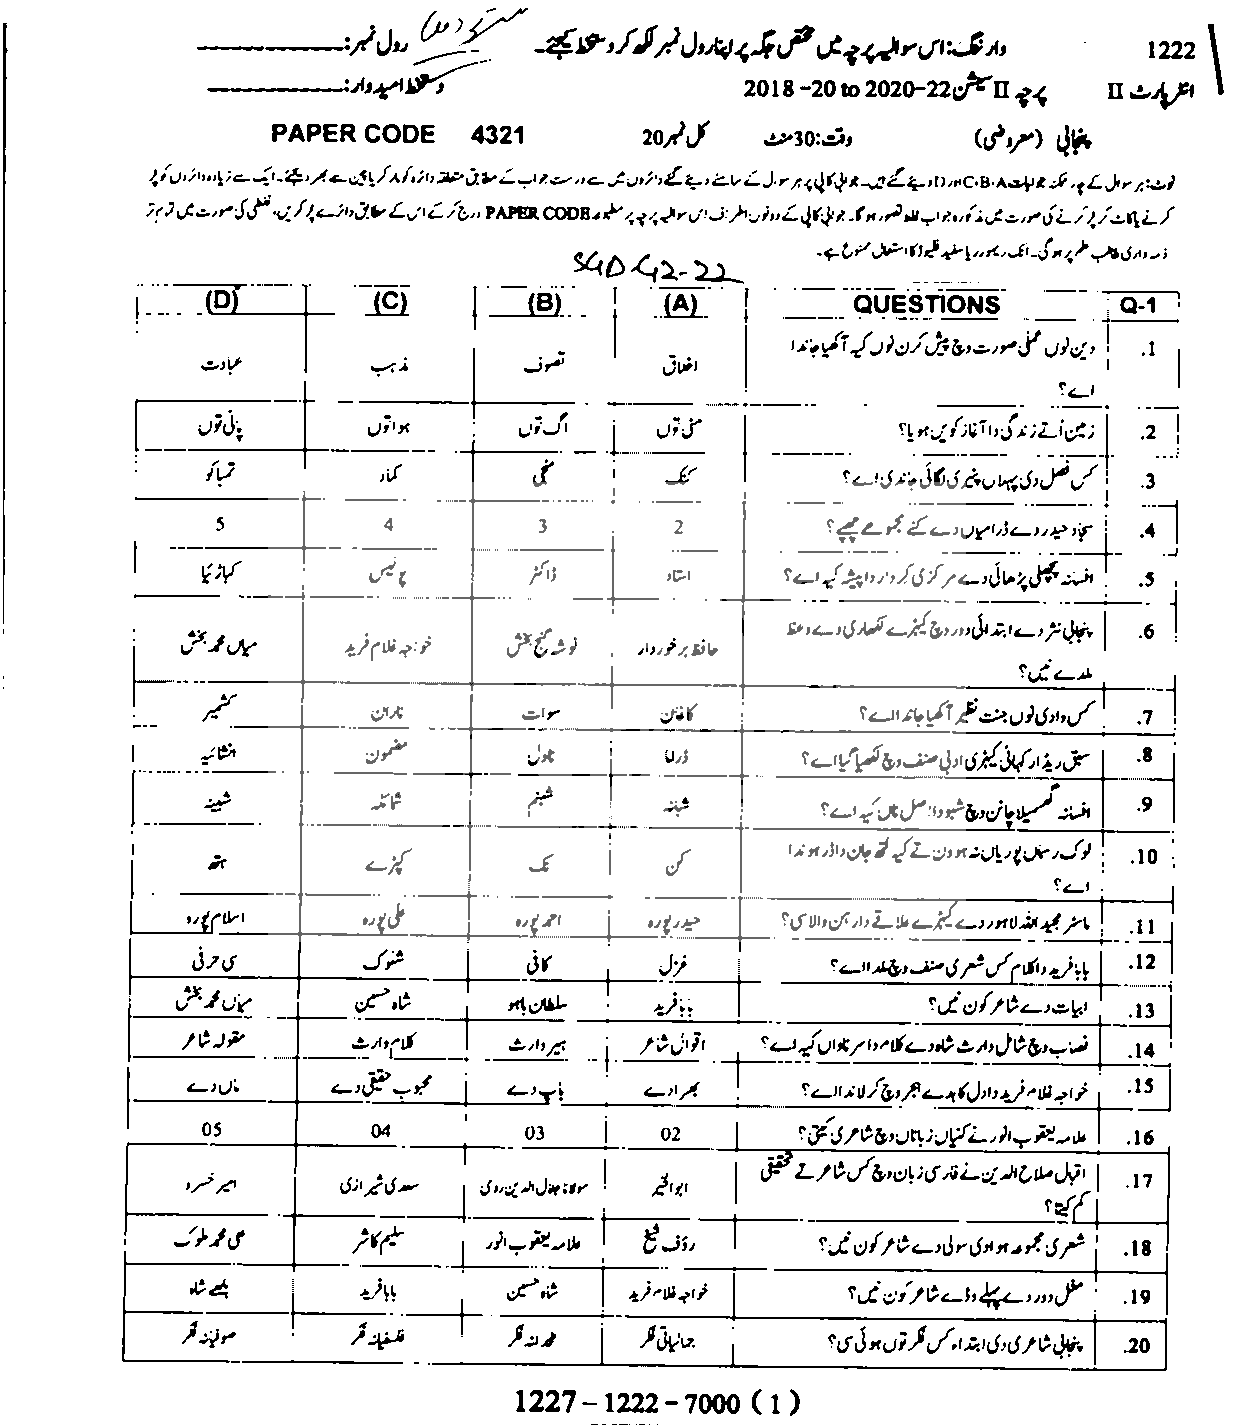 1222 وارننگ: اس سوالیہ پرچہ میں مختص جگہ پر اپنا رول نمبر لکھ کر دستخط کیجئے۔ رول نمبر: ____________
انٹر پارٹ II پرچہ II سیشن 2018-20 to 2020-22 دستخط امیدوار: ____________
پنجابی (معروضی) وقت: 30 منٹ کل نمبر 20 PAPER CODE 4321
نوٹ: ہر سوال کے چار ممکنہ جوابات C،B،A اور D دیئے گئے ہیں۔ جوابی کاپی پر ہر سوال کے سامنے دیئے گئے دائروں میں سے درست جواب کے مطابق متعلقہ دائرہ کو مارکر یا پین سے بھر دیجئے۔ ایک سے زیادہ دائروں کو پر
کرنے یا کاٹ کر پر کرنے کی صورت میں مذکورہ جواب غلط تصور ہوگا۔ جوابی کاپی کے دونوں اطراف اس سوالیہ پرچہ پر مطبوعہ PAPER CODE درج کر کے اس کے مطابق دائرے پر کریں، غلطی کی صورت میں تمام تر
ذمہ داری طالب علم پر ہوگی۔ انک ریموور یا سفید فلیوڈ کا استعمال ممنوع ہے۔
SGD-G2-22
Q-1 QUESTIONS (A) (B) (C) (D)
1. دین نوں عملی صورت وچ پیش کرن نوں کیہ آکھیا جاندا
اے؟ اخلاق تصوف مذہب عبادت
2. زمین اُتے زندگی دا آغاز کویں ہویا؟ مٹی توں اگ توں ہوا توں پانی توں
3. کس فصل دی پہلاں پنیری لگائی جاندی اے؟ کنک منجی کماد تمباکو
4. سجاد حیدر دے ڈرامیاں دے کنے مجموعے چھپے؟ 2 3 4 5
5. افسانہ پچھلی پڑھائی دے مرکزی کردار دا پیشہ کیہ اے؟ استاد ڈاکٹر پولیس کباڑیا
6. پنجابی نثر دے ابتدائی دور وچ کیہڑے لکھاری دے وعظ
ملدے نیں؟ حافظ برخوردار نوشہ گنج بخش خواجہ غلام فرید میاں محمد بخش
7. کس وادی نوں جنت نظیر آکھیا جاندا اے؟ کاغان سوات ناران کشمیر
8. سبق ریڈار کہانی کیہڑی ادبی صنف وچ لکھیا گیا اے؟ ڈراما ناول مضمون انشائیہ
9. افسانہ گھسمیلا چانن وچ شبو دا اصل ناں کیہ اے؟ شبانہ شبنم شمائلہ شبینہ
10. لوک رسماں پوریاں نہ ہوون تے کیہ لتھ جان دا ڈر ہوندا
اے؟ کن نک کپڑے ہتھ
11. ماسٹر مجید اللہ لاہور دے کیہڑے علاقے دا رہن والا سی؟ حیدر پورہ احمد پورہ علی پورہ اسلام پورہ
12. بابا فرید دا کلام کس شعری صنف وچ ملدا اے؟ غزل کافی شلوک سی حرفی
13. ابیات دے شاعر کون نیں؟ بابا فرید سلطان باہو شاہ حسین میاں محمد بخش
14. نصاب وچ شامل وارث شاہ دے کلام دا سرناواں کیہ اے؟ اقوال شاعر ہیر وارث کلام وارث مقولہ شاعر
15. خواجہ غلام فرید دا دل کاہدے ہجر وچ کرلاندا اے؟ بھرا دے باپ دے محبوب حقیقی دے ماں دے
16. علامہ یعقوب انور نے کنیاں زباناں وچ شاعری کیتی؟ 02 03 04 05
17. اقبال صلاح الدین نے فارسی زبان وچ کس شاعر تے تحقیقی
کم کیتا؟ ابوالخیر مولانا جلال الدین رومی سعدی شیرازی امیر خسرو
18. شعری مجموعہ ہوا دی سولی دے شاعر کون نیں؟ رؤف شیخ علامہ یعقوب انور سلیم کاشر علی محمد ملوک
19. مغل دور دے پہلے وڈے شاعر کون نیں؟ خواجہ غلام فرید شاہ حسین بابا فرید بلھے شاہ
20. پنجابی شاعری دی ابتداء کس فکر توں ہوئی سی؟ جمالیاتی فکر ملحدانہ فکر فلسفیانہ فکر صوفیانہ فکر
1227 – 1222 – 7000 ( 1 )